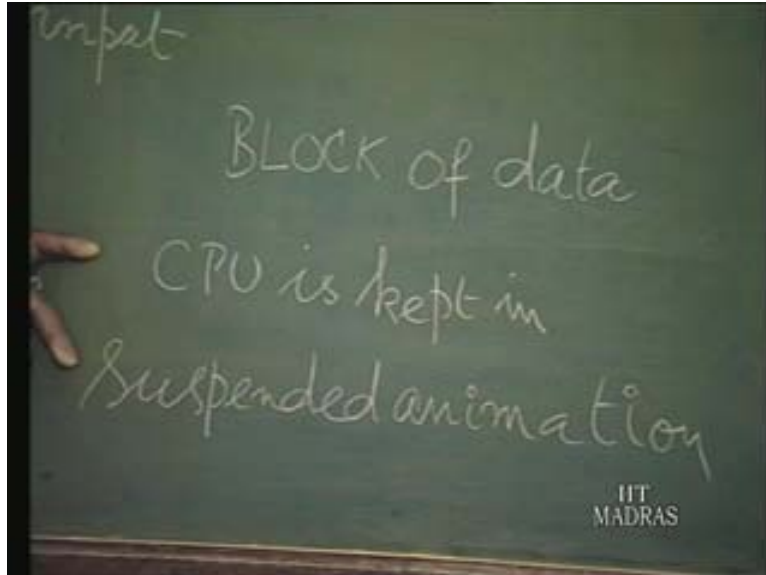 input
BLOCK of data
CPU is kept in
suspended animation
IIT
MADRAS